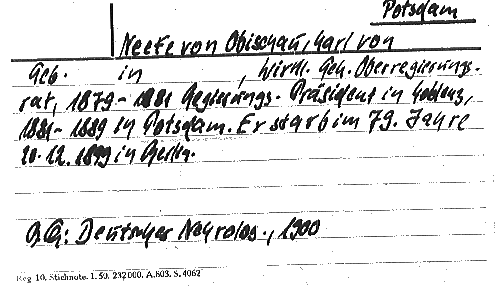 Potsdam
Neefe von Obischau, Carl von
Geb. in , Wirkl. Geh. Oberregierungs-
rat, 1879-1881 Regierungs-Präsident in Coblenz,
1881-1889 in Potsdam. Er starb im 79. Jahre
20.12.1899 in Berlin.
Q.: Deutscher Nekrolog, 1900
Reg 10. Stichnote. 1. 50. 232000. A.803. S. 4062